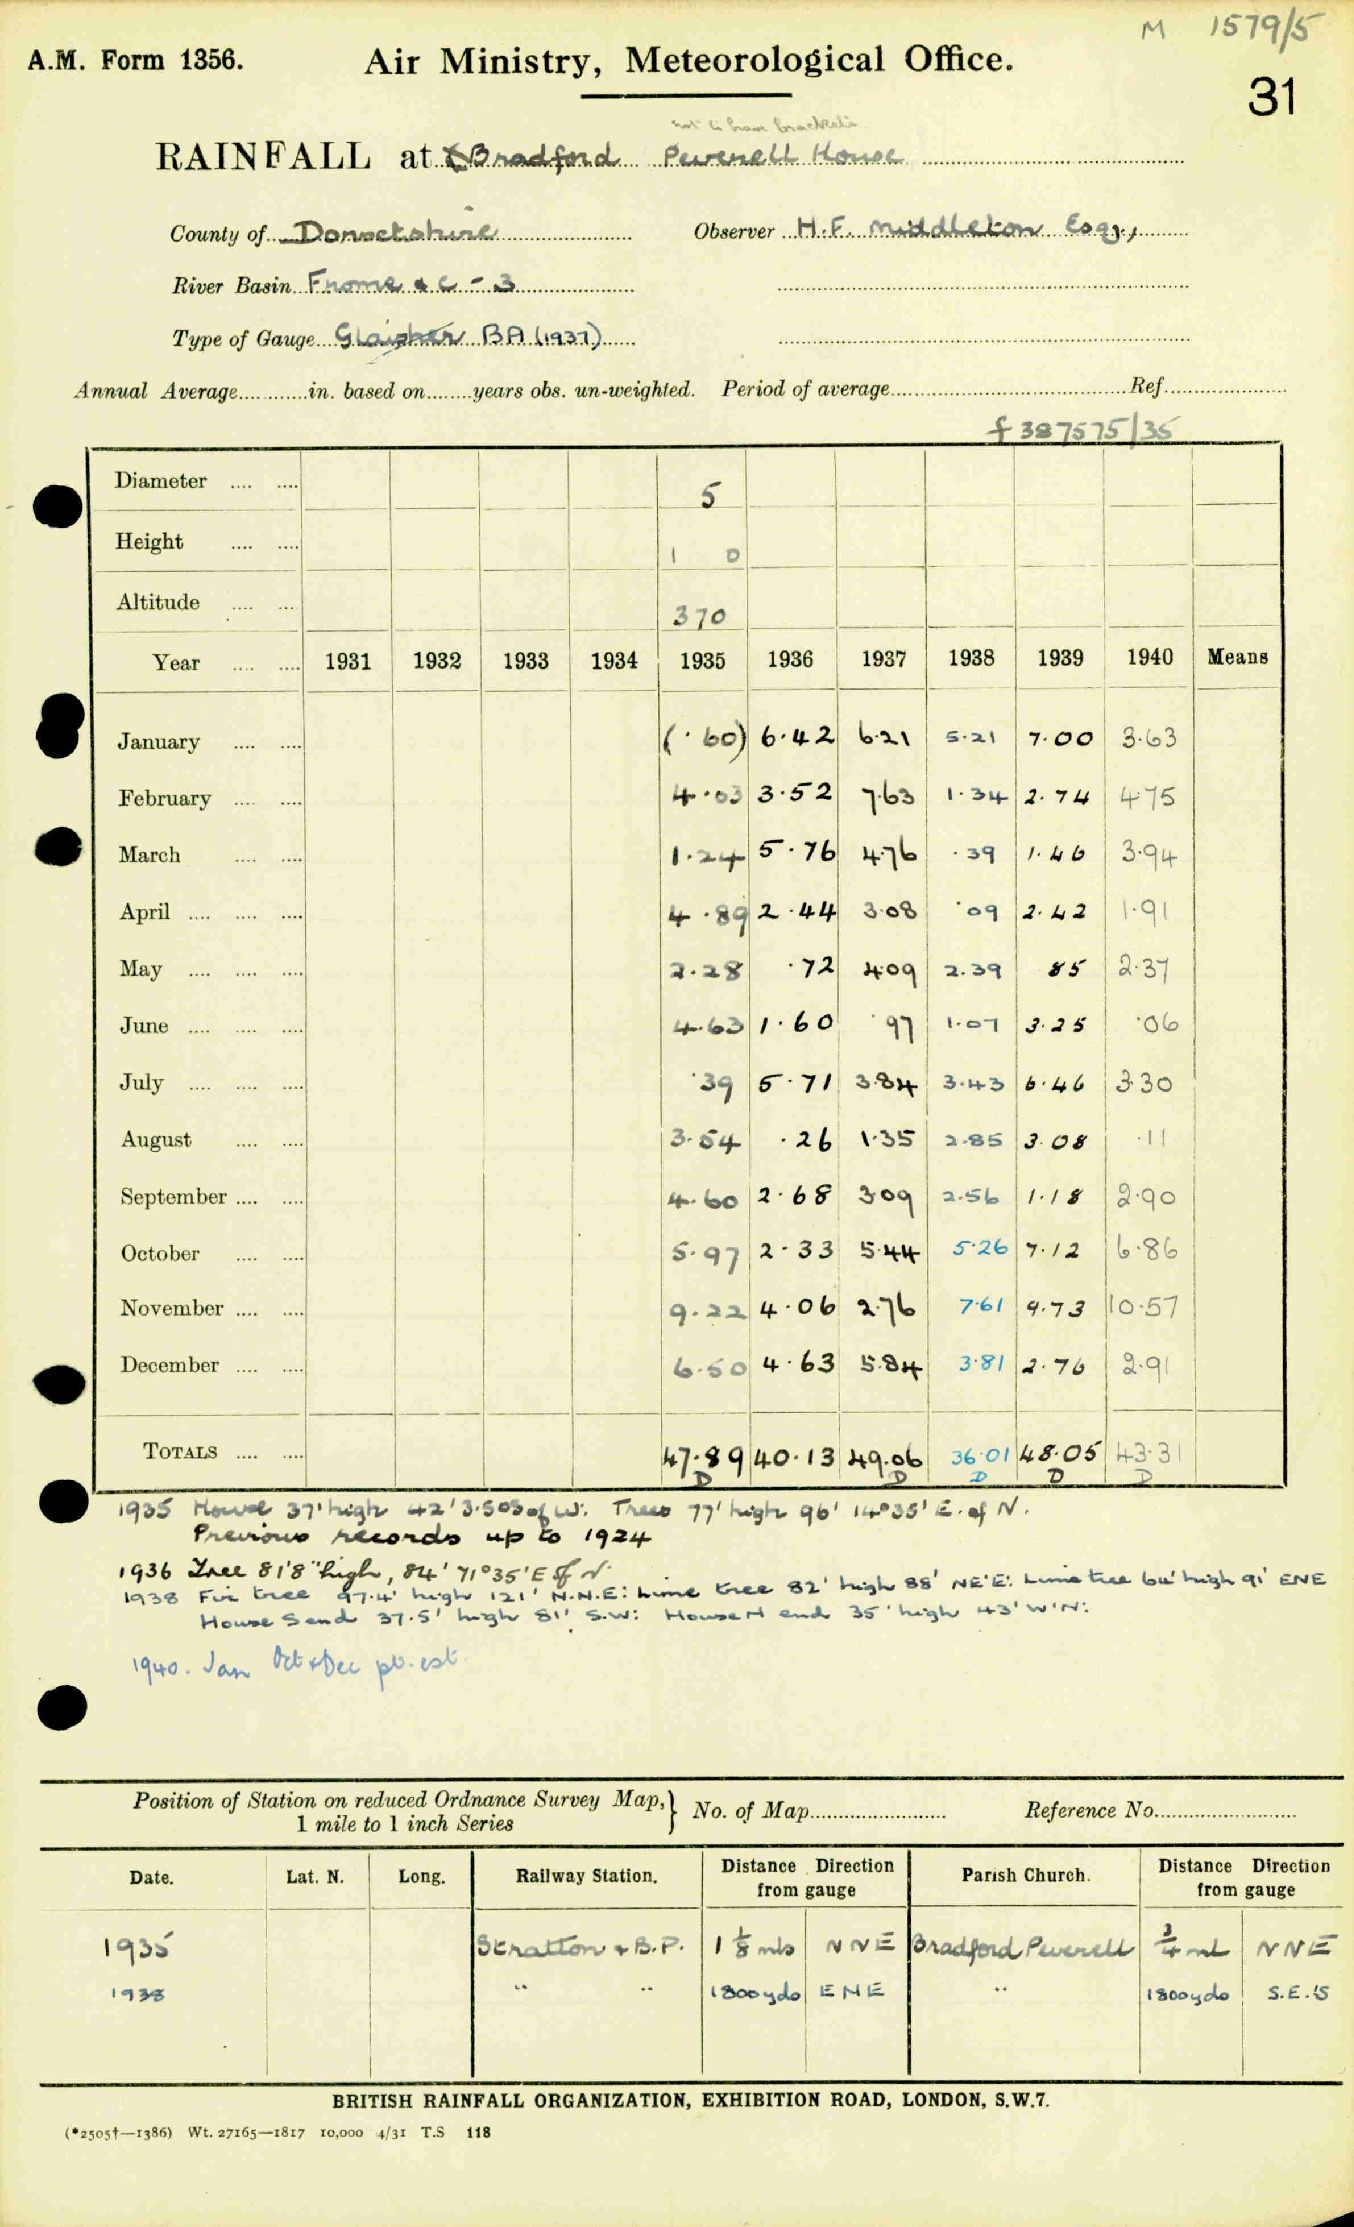 M 1579/5
A.M. Form 1356. Air Ministry, Meteorological Office.
31
not to have brackets
RAINFALL at Bradford Peverell House
County of Dorsetshire Observer H.F. Middleton Esq.,
River Basin Frome &c - 3
Type of Gauge Glaisher BA (1937)
Annual Average............in. based on........years obs. un-weighted. Period of average.......... Ref..........
f 387575/35
Diameter .... .... 5
Height .... .... 1 0
Altitude .... .... 370
Year .... .... 1931 1932 1933 1934 1935 1936 1937 1938 1939 1940 Means
January .... .... (·60) 6·42 6·21 5·21 7·00 3·63
February .... .... 4·03 3·52 7·63 1·34 2·74 4·75
March .... .... 1·24 5·76 4·76 ·39 1·46 3·94
April .... .... .... 4·89 2·44 3·08 ·09 2·42 1·91
May .... .... .... 2·28 ·72 4·09 2·39 85 2·37
June .... .... .... 4·63 1·60 ·97 1·07 3·25 ·06
July .... .... .... ·39 5·71 3·84 3·43 6·46 3·30
August .... .... 3·54 ·26 1·35 2·85 3·08 ·11
September .... .... 4·60 2·68 3·09 2·56 1·18 2·90
October .... .... 5·97 2·33 5·44 5·26 7·12 6·86
November .... .... 9·22 4·06 2·76 7·61 9·73 10·57
December .... .... 6·50 4·63 5·84 3·81 2·76 2·91
TOTALS .... .... 47·89 40·13 49·06 36·01 48·05 43·31
D D D D D
1935 House 37' high 42' 3·5° S of W: Trees 77' high 96' 14°35' E. of N.
Previous records up to 1924
1936 Tree 81'8" high, 84' 71°35' E of N
1938 Fir tree 97·4' high 121' N.N.E: Lime tree 82' high 88' NE'E: Lime tree 64' high 91' ENE
House S end 37·5' high 81' S.W: House N end 35' high 43' W'N:
1940. Jan Oct & Dec pt. est.
Position of Station on reduced Ordnance Survey Map, } No. of Map.......... Reference No..........
1 mile to 1 inch Series
Date. Lat. N. Long. Railway Station. Distance Direction from gauge Parish Church. Distance Direction from gauge
1935 Stratton & B.P. 1 1/8 mls NNE Bradford Peverell 3/4 ml NNE
1938 " " 1800 yds ENE " 1800 yds S.E.'S
BRITISH RAINFALL ORGANIZATION, EXHIBITION ROAD, LONDON, S.W.7.
(*2505†—1386) Wt. 27165—1817 10,000 4/31 T.S 118